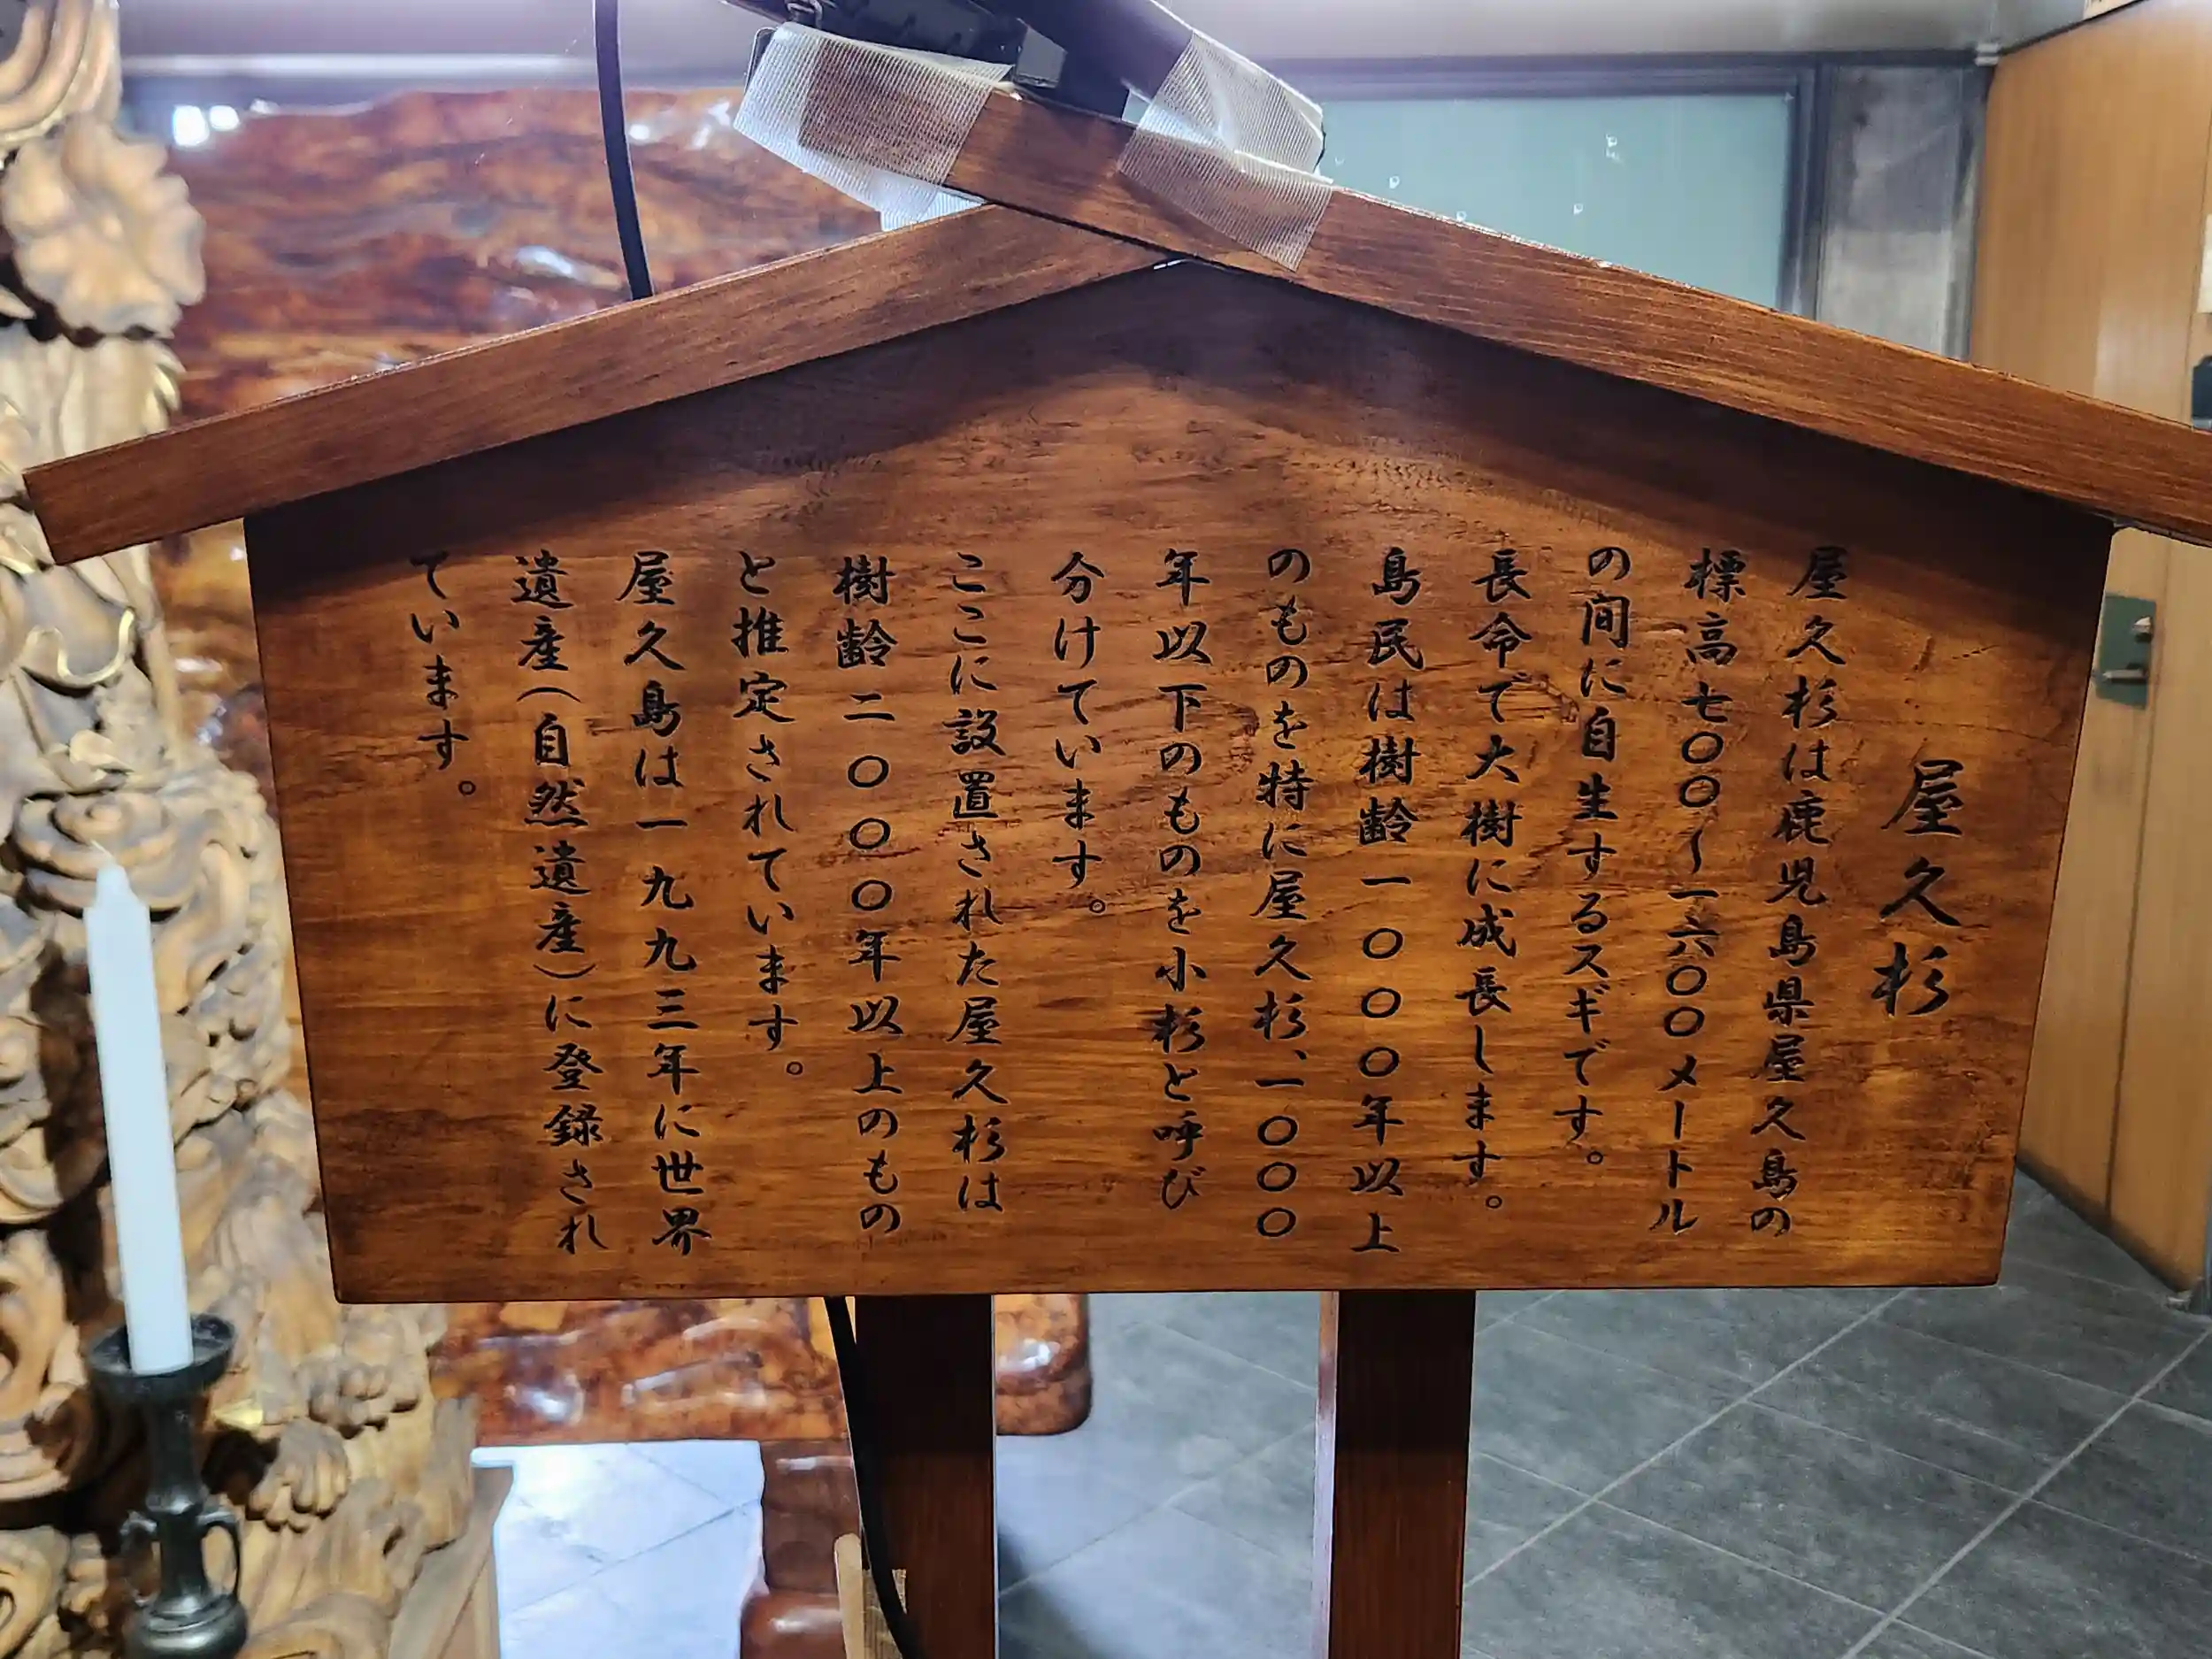 屋久杉
屋久杉は鹿児島県屋久島の
標高七〇〇〜一六〇〇メートル
の間に自生するスギです。
長命で大樹に成長します。
島民は樹齢一〇〇〇年以上
のものを特に屋久杉、一〇〇〇
年以下のものを小杉と呼び
分けています。
ここに設置された屋久杉は
樹齢二〇〇〇年以上のもの
と推定されています。
屋久島は一九九三年に世界
遺産(自然遺産)に登録され
ています。